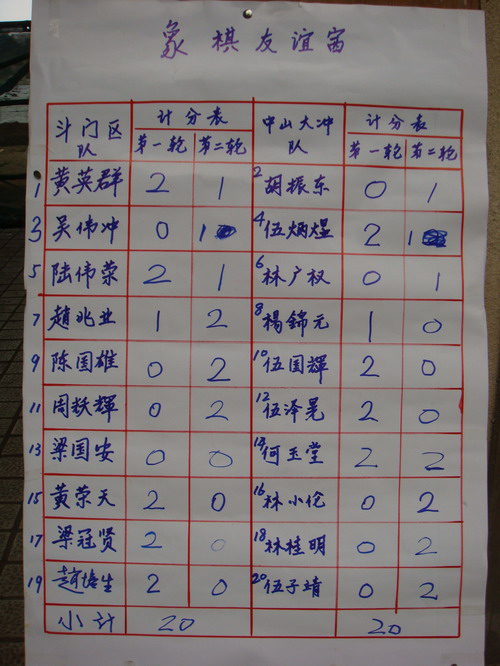 象棋友谊寄
斗门区队 计分表 中山大冲队 计分表
第一轮 第二轮 第一轮 第二轮
1 黄英群 2 1 2 胡振东 0 1
3 吴伟冲 0 1 4 伍炳煜 2 1
5 陆伟荣 2 1 6 林户权 0 1
7 趙兆业 1 2 8 楊錦元 1 0
9 陈国雄 0 2 10 伍国輝 2 0
11 周轶輝 0 2 12 伍泽晃 2 0
13 梁国安 0 0 何玉堂 2 2
15 黄荣天 2 0 16 林小伦 0 2
17 梁冠贤 2 0 18 林桂明 0 2
19 趙培生 2 0 20 伍子靖 0 2
小计 20 20